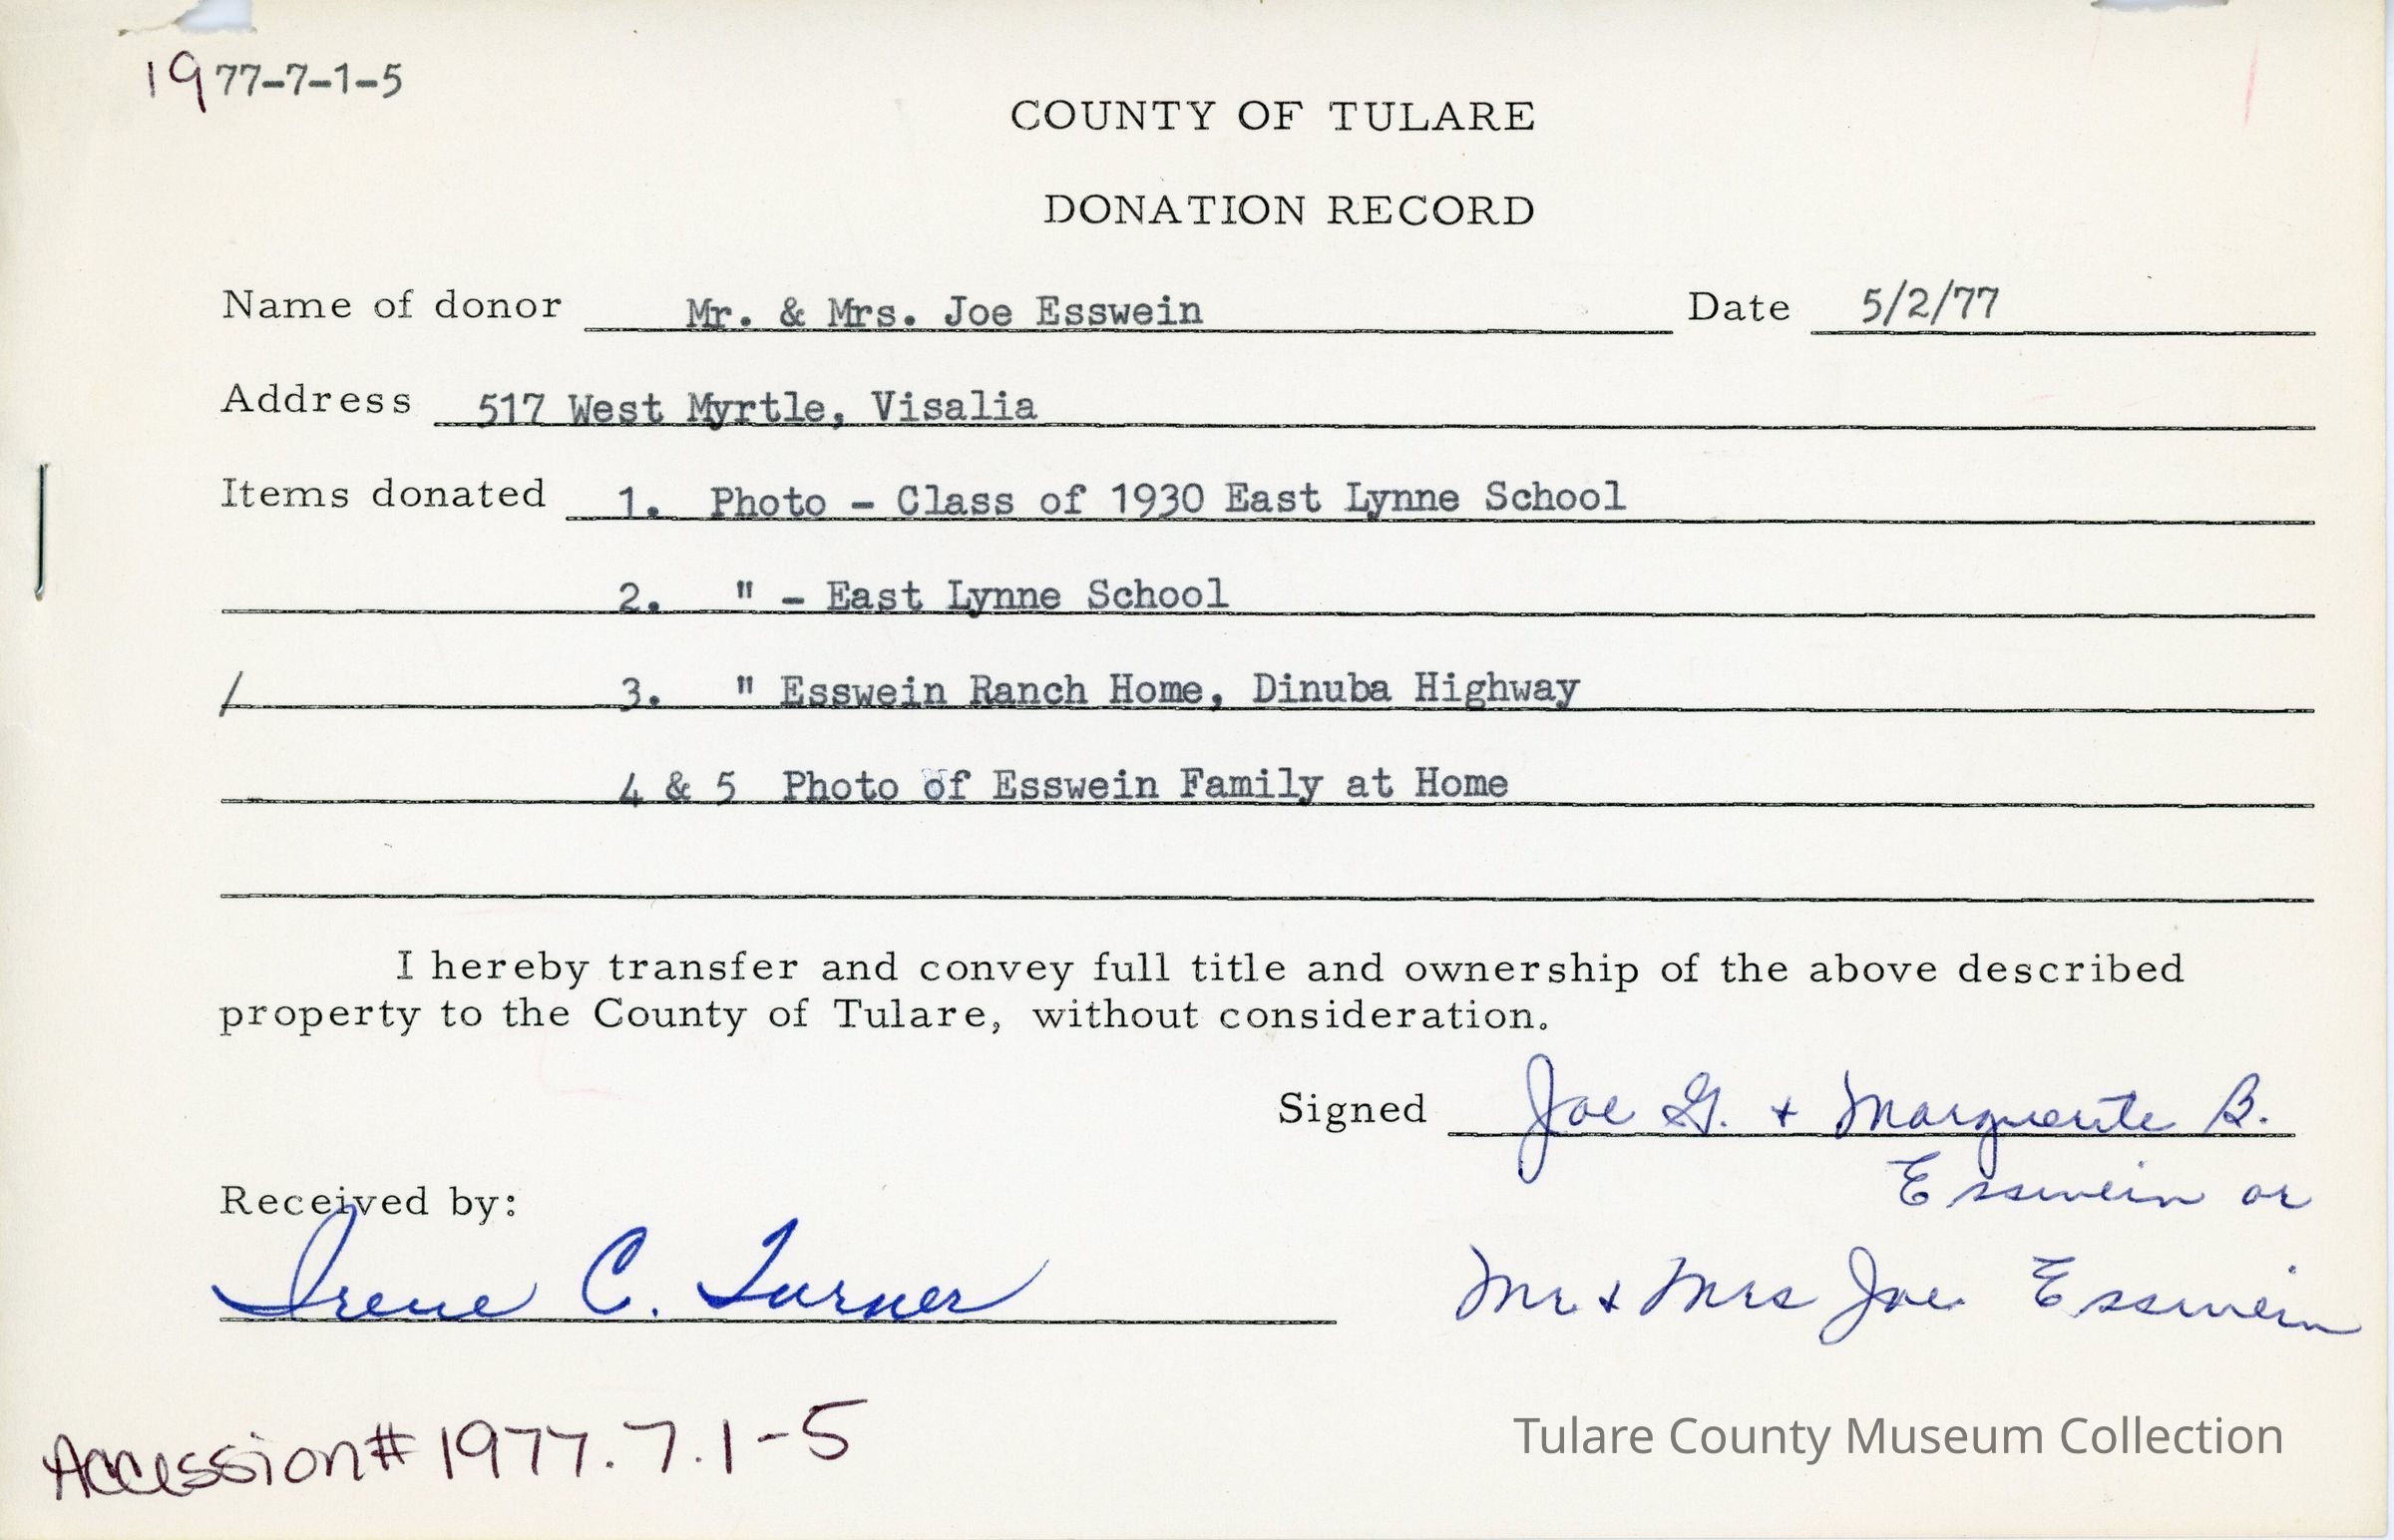 1977-7-1-5
COUNTY OF TULARE
DONATION RECORD
Name of donor Mr. & Mrs. Joe Esswein Date 5/2/77
Address 517 West Myrtle, Visalia
Items donated 1. Photo - Class of 1930 East Lynne School
2. " - East Lynne School
/ 3. " Esswein Ranch Home, Dinuba Highway
4 & 5 Photo of Esswein Family at Home
I hereby transfer and convey full title and ownership of the above described
property to the County of Tulare, without consideration.
Signed Joe G. + Marguerite B.
Esswein or
Received by:
Irene C. Turner
Mr + Mrs Joe Esswein
Accession# 1977.7.1-5
Tulare County Museum Collection